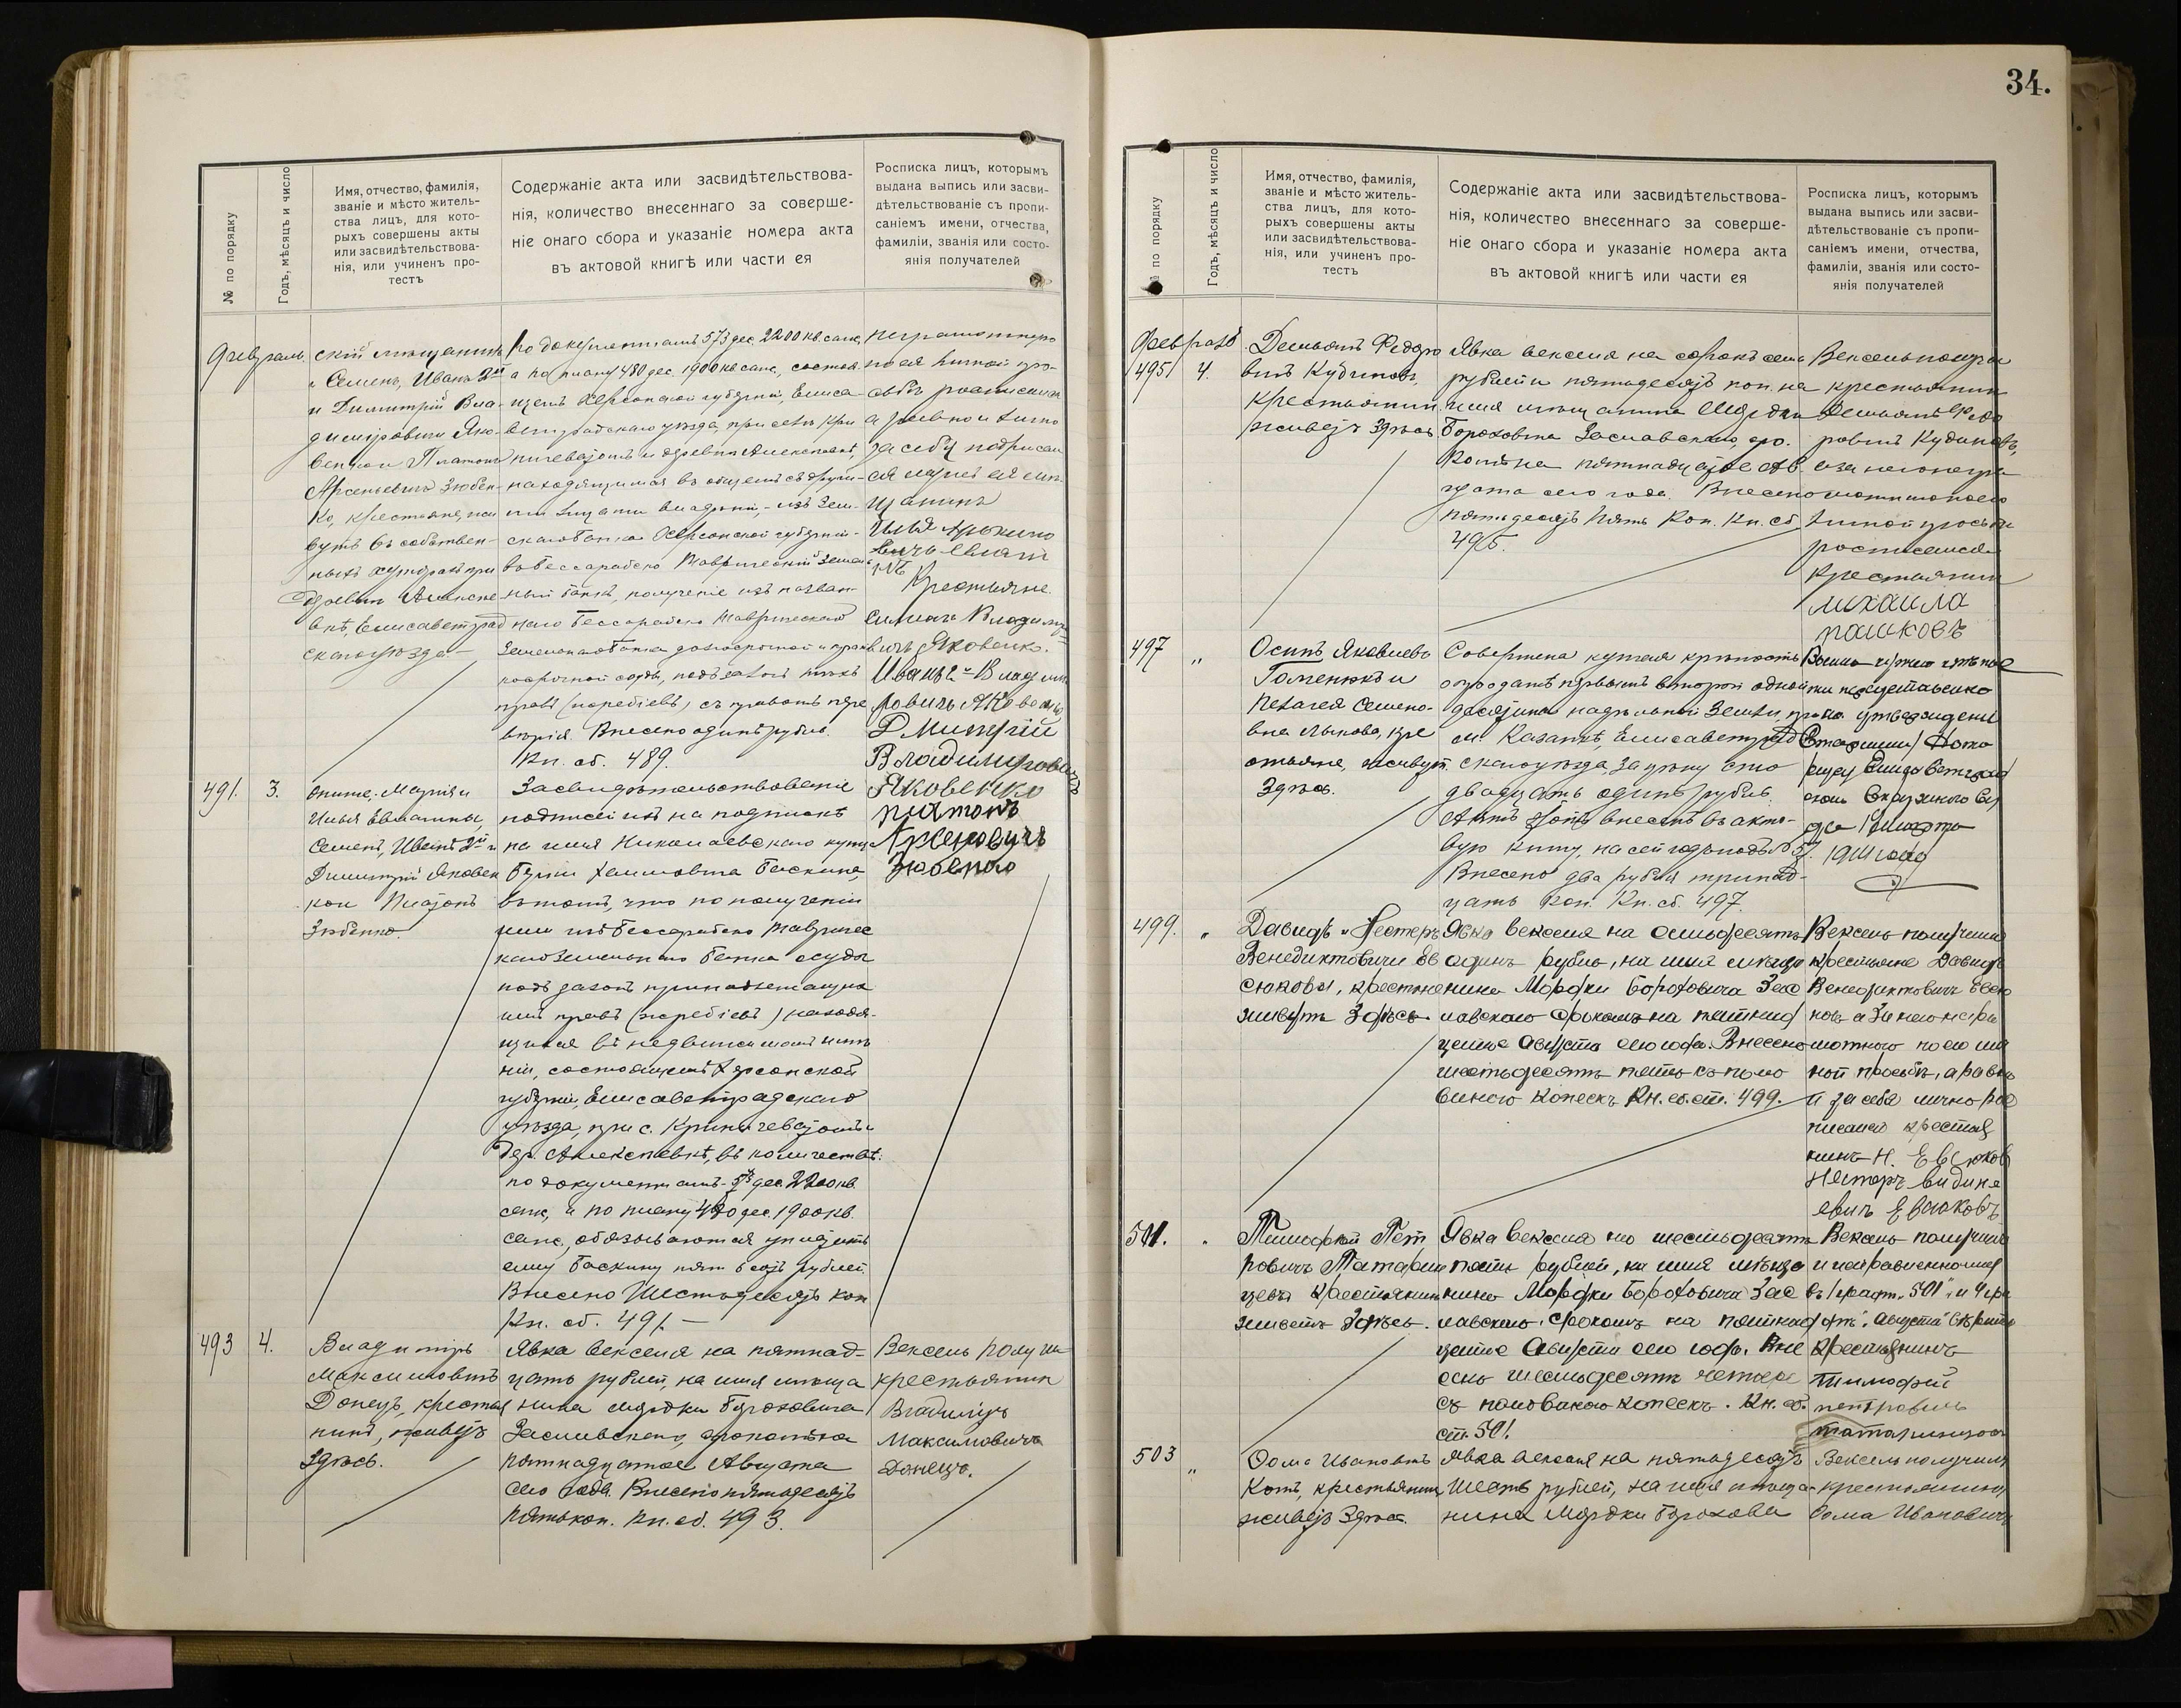 34.
№ по порядку
Годъ, мѣсяцъ и число
Имя, отчество, фамилія,
званіе и мѣсто житель-
ства лицъ, для кото-
рыхъ совершены акты
или засвидѣтельствова-
нія, или учиненъ про-
тестъ
Содержаніе акта или засвидѣтельствова-
нія, количество внесеннаго за соверше-
ніе онаго сбора и указаніе номера акта
въ актовой книгѣ или части ея
Росписка лицъ, которымъ
выдана выпись или засви-
дѣтельствованіе съ пропи-
саніемъ имени, отчества,
фамиліи, званія или состо-
янія получателей
Февраль
скій мѣщанинъ
и Семенъ, Иванъ 2й
и Димитрій Вла-
диміровичи Яко-
венки и Платонъ
Арсеньевичъ Зюбен-
ко, крестьяне, жи
вутъ въ собствен-
ныхъ хуторахъ при
деревнѣ Алексѣе
вкѣ, Елисаветград
скаго уѣзда.
по документамъ 573 дес. 2200 кв. саж,
а по плану 480 дес. 1900 кв саж, состоя
щемъ Херсонской губерніи, Елиса-
ветградскаго уѣзда, при селѣ Кри
ничеватомъ и деревнѣ Алексѣевкѣ,
находящимся въ общемъ съ други-
ми лицами владѣніи, - изъ Зем-
скаго Банка Херсонской губерніи-
въ Бессарабско Таврическій Земель
ный банкъ, полученіе изъ назван-
наго Бессарабско Таврическаго
Земельнаго Банка долгосрочной и крат
косрочной ссудъ, подъ залогъ тѣхъ
правъ (жеребіевъ) съ правомъ пере
вѣрія. Внесено одинъ рубль.
Кн. сб. 489.
неграмотную
по ея личной про-
сьбѣ росписался
а равно и лично
за себя подписал
ся мужъ ея мѣ-
щанинъ
Крестьяне
Семенъ Владимиро
вичъ Яковенко.
Иванъ 2й Владими
ровичъ Яковенко
Дмитрій
Владимировичъ
Яковенко
платонъ
Арсеновичъ
Зюбенко
491. 3.
Илья Евмагины,
Семенъ, Иванъ 2й и
Димитрій Яковен
ки и Платонъ
Зюбенко.
Засвидѣтельствованіе
подписей ихъ на подпискѣ
на имя Николаевскаго купца
Берки Хаимовича Баскина,
въ томъ, что по полученіи
ими изъ Бессарабско Тавричес
каго Земельнаго Банка ссуды
подъ залогъ принадлежащихъ
имъ правъ (жребіевъ) находя-
щихся въ недвижимомъ имѣ
ніи, состоящемъ Херсонской
губерніи, Елисаветградскаго
уѣзда, при с. Криничеватомъ и
дер. Алексѣевкѣ, въ количествѣ:
по документамъ 573 дес. 2200 кв.
саж, и по плану 480 дес. 1900 кв.
саж., обязываются уплатить
ему Баскину пятьсотъ рублей.
Внесено Шестьдесятъ коп
Кн. сб. 491. —
493 4.
Владиміръ
Максимовичъ
Донецъ, крестья
нинъ, живетъ
здѣсь.
Явка векселя на пятнад-
цать рублей, на имя мѣща
нина Мордки Бороховича
Заславскаго, срокомъ на
пятнадцатое Августа
сего года. Внесено пятьдесятъ
пять коп. Кн. сб. 493.
Вексель получи
крестьянинъ
Владимиръ
Максимовичъ
Донецъ.
№ по порядку
Годъ, мѣсяцъ и число
Имя, отчество, фамилія,
званіе и мѣсто житель-
ства лицъ, для кото-
рыхъ совершены акты
или засвидѣтельствова-
нія, или учиненъ про-
тестъ
Содержаніе акта или засвидѣтельствова-
нія, количество внесеннаго за соверше-
ніе онаго сбора и указаніе номера акта
въ актовой книгѣ или части ея
Росписка лицъ, которымъ
выдана выпись или засви-
дѣтельствованіе съ пропи-
саніемъ имени, отчества,
фамиліи, званія или состо-
янія получателей
Февраль
495 4.
Демьянъ Федоро
вичъ Кудиновъ,
крестьянинъ,
живетъ здѣсь.
Явка векселя на сорокъ семь
рублей и пятьдесятъ коп. на
имя мѣщанина Мордки
Бороховича Заславскаго, сро.
комъ на пятнадцатое Ав.
густа сего года. Внесено
пятьдесятъ пять коп. Кн. сб.
495.
Вексель получи
крестьянинъ
Демьянъ Федо
ровичъ Кудиновъ,
а за него негра
мотнаго по его
личной просьбѣ
росписался
крестьянинъ
михаила
пашковъ
497 „
Осипъ Яковлевъ
Гоменюкъ и
Пелагея Семено-
вна Лыкова, кре
стьяне, живутъ
здѣсь.
Совершена купчая крѣпость
о продажѣ первымъ второй одной
десятины надѣльной земли, при
м. Казанкѣ, Елисаветград
скаго уѣзда, за цѣну сто
двадцать одинъ рубль.
Актъ этотъ внесенъ въ акто-
вую книгу, на сей годъ подъ № 57.
Внесено два рубля тринад-
цать коп. Кн. сб. 497.
499. „
Давидъ и Нестеръ
Венедиктовичи Ев
сюковы, крестьяне
живутъ здѣсь
Явка векселя на семьдесятъ
одинъ рубль, на имя мѣща
нина Мордки Бороховича Зас
лавскаго срокомъ на пятнад
цатое Августа сего года. Внесено
шестьдесятъ пять съ поло
виною копеекъ Кн. сб. ст. 499.
Вексель получили
крестьяне Давидъ
Венедиктовичъ Евсю
ковъ а за него негра
мотнаго по его лич
ной просьбѣ, а равно
и за себя лично рос
писался крестья
нинъ Н. Евсюковъ
501. „
Тимофей Пет
ровичъ Татарин
цевъ крестьянинъ
живетъ здѣсь.
Явка векселя на шестьдесятъ
пять рублей, на имя мѣща
нина Мордки Бороховича Зас
лавскаго, срокомъ на пятнад
цатое Августа сего года. Вне
сено шестьдесятъ четыре
съ половиною копеекъ. Кн. сб.
ст. 501.
Вексель получилъ
крестьянинъ
Тимофей
петровичъ
503 „
Ѳома Ивановичъ
Котъ, крестьянинъ
живетъ здѣсь.
Явка векселя на пятьдесятъ
шесть рублей, на имя мѣща-
нина Мордки Борохова
Вексель получилъ
крестьянинъ
Ѳома Ивановичъ